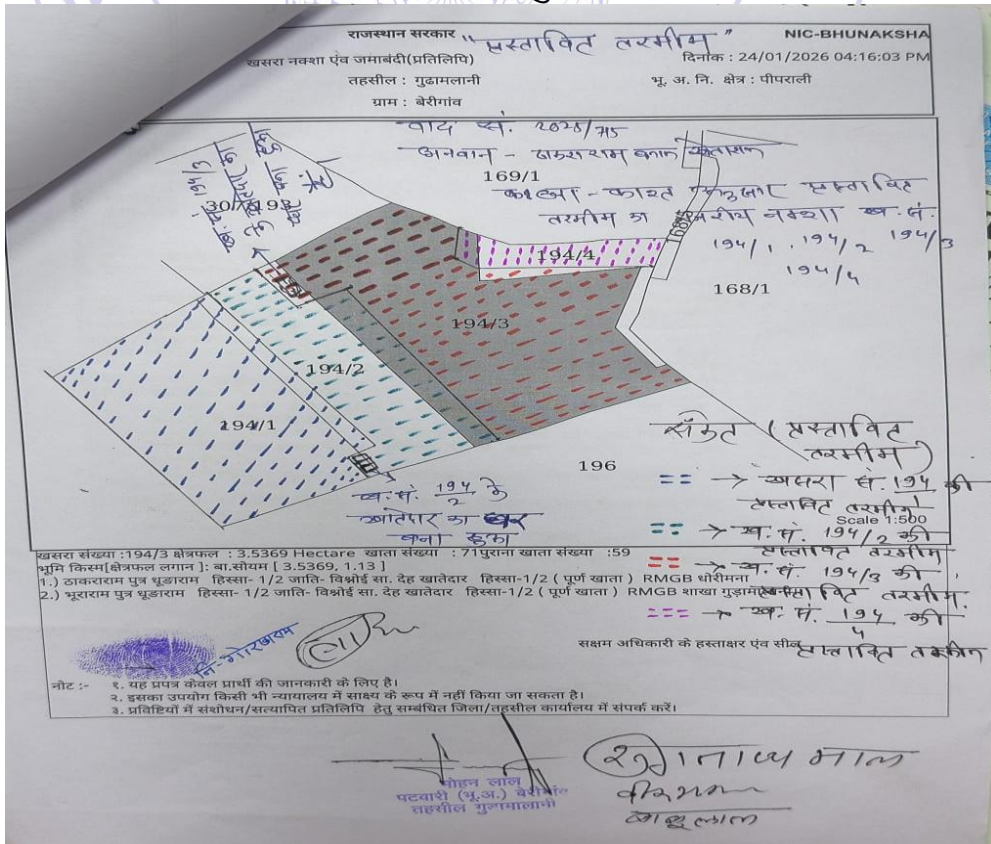 राजस्थान सरकार "प्रस्तावित तरमीम" NIC-BHUNAKSHA
खसरा नक्शा एंव जमाबंदी(प्रतिलिपि) दिनांक : 24/01/2026 04:16:03 PM
तहसील : गुढामलानी भू. अ. नि. क्षेत्र : पीपराली
ग्राम : बेरीगांव
वाद सं. 2025/715
अनवान - ठाकराराम बनाम
169/1
कब्जा - काश्त अनुसार प्रस्तावित
तरमीम का नजरीय नक्शा ख. सं.
194/1, 194/2 194/3
194/4
ख. सं. 194/3
168/1
194/4
194/3
194/2
194/1
196
ख. सं. 194/2 के
खातेदार का घर
बना हुआ
संकेत (प्रस्तावित
तरमीम)
== → खसरा सं. 194/1 की
प्रस्तावित तरमीम
Scale 1:500
== → ख. सं. 194/2 की
प्रस्तावित तरमीम
== → ख. सं. 194/3 की
प्रस्तावित तरमीम.
=== → ख. सं. 194/4 की
प्रस्तावित तरमीम
खसरा संख्या :194/3 क्षेत्रफल : 3.5369 Hectare खाता संख्या : 71पुराना खाता संख्या :59
भूमि किस्म[क्षेत्रफल लगान ]: बा.सोयम [ 3.5369, 1.13 ]
1.) ठाकराराम पुत्र धूङाराम हिस्सा- 1/2 जाति- विश्नोई सा. देह खातेदार हिस्सा-1/2 ( पूर्ण खाता ) RMGB धोरीमना
2.) भूराराम पुत्र धूङाराम हिस्सा- 1/2 जाति- विश्नोई सा. देह खातेदार हिस्सा-1/2 ( पूर्ण खाता ) RMGB शाखा
सक्षम अधिकारी के हस्ताक्षर एंव सील
नि-गोरखाराम
नोट :- १. यह प्रपत्र केवल प्रार्थी की जानकारी के लिए है।
२. इसका उपयोग किसी भी न्यायालय में साक्ष्य के रूप में नहीं किया जा सकता है।
३. प्रविष्टियों में संशोधन/सत्यापित प्रतिलिपि हेतु सम्बंधित जिला/तहसील कार्यालय में संपर्क करें।
मोहन लाल
पटवारी (भू.अ.) बेरीगांव
तहसील गुडामालानी
बाबूलाल